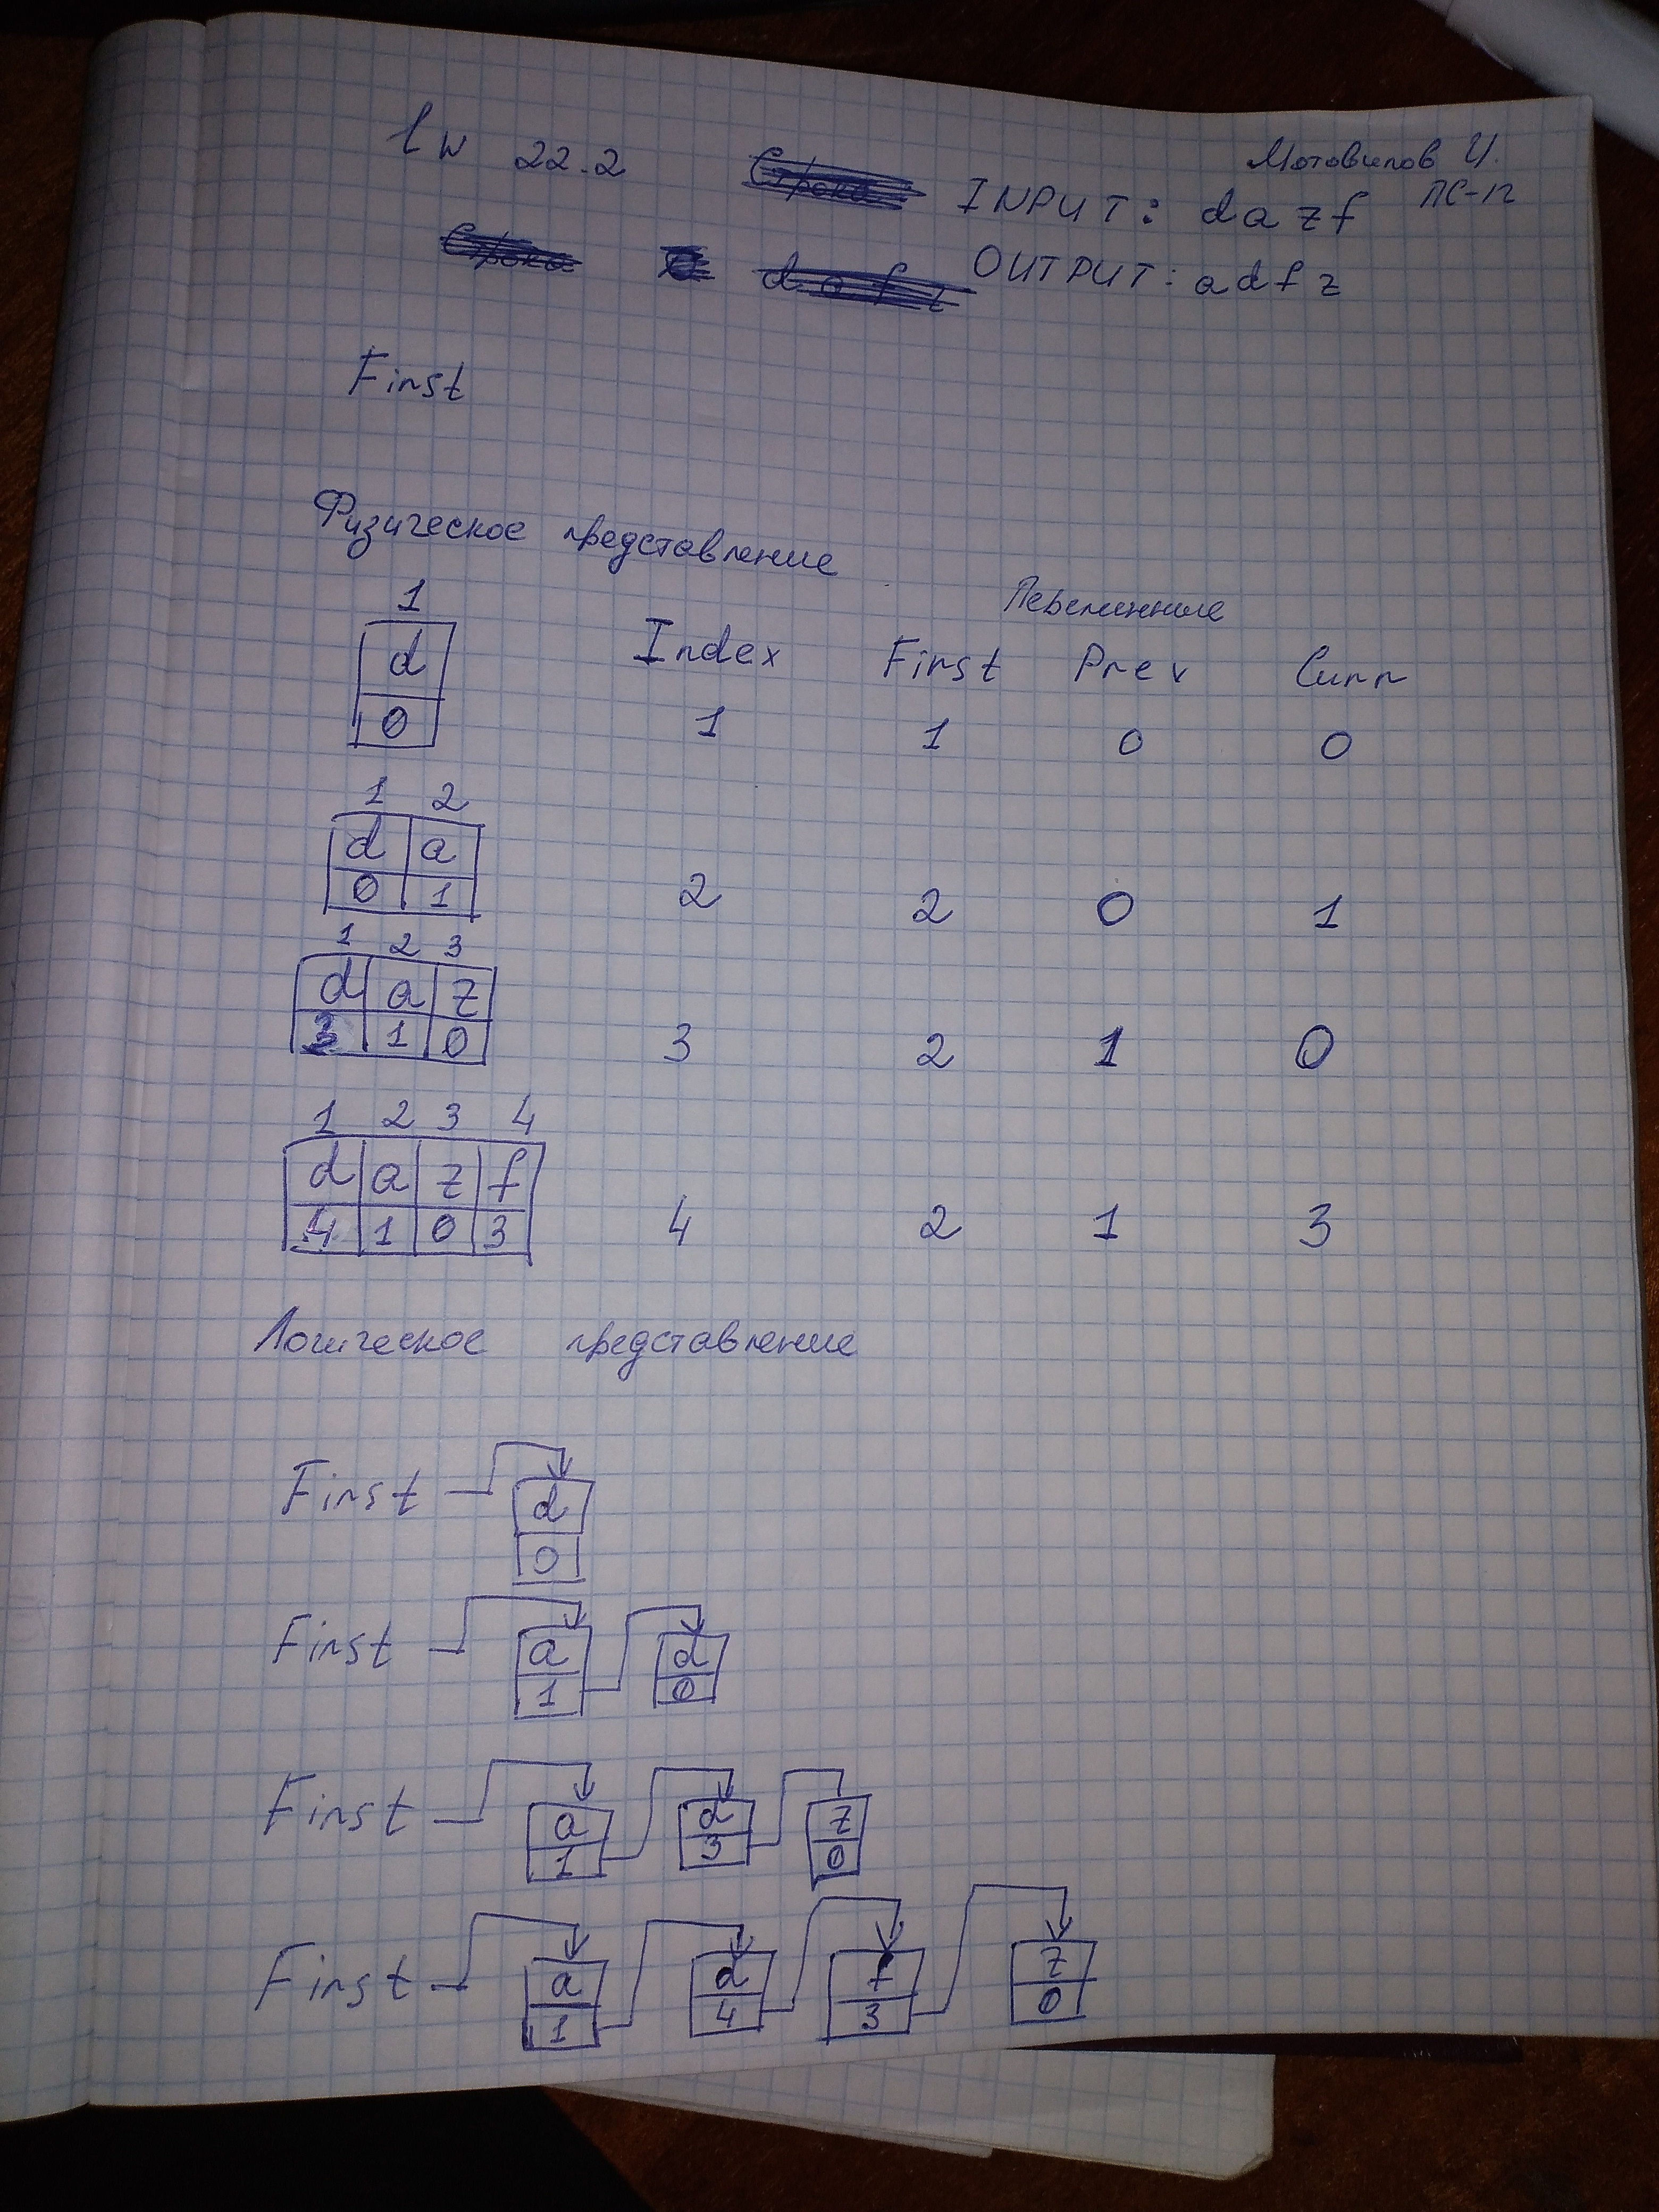 lw 22.2
Мотовилов И.
ПС-12
INPUT: d a z f
OUTPUT: a d f z
First
Физическое представление
Переменные
Index First Prev Curr
1
d
0
1 1 0 0
1 2
d a
0 1
2 2 0 1
1 2 3
d a z
3 1 0
3 2 1 0
1 2 3 4
d a z f
4 1 0 3
4 2 1 3
Логическое представление
First
d
0
First
a d
1 0
First
a d z
1 3 0
First
a d f z
1 4 3 0